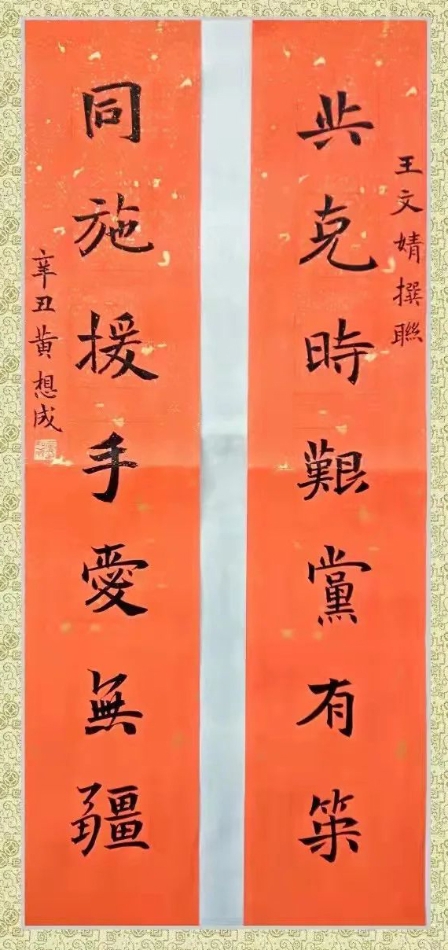 王文婧撰聯
共克時艱黨有策
同施援手愛無疆
辛丑黄想成